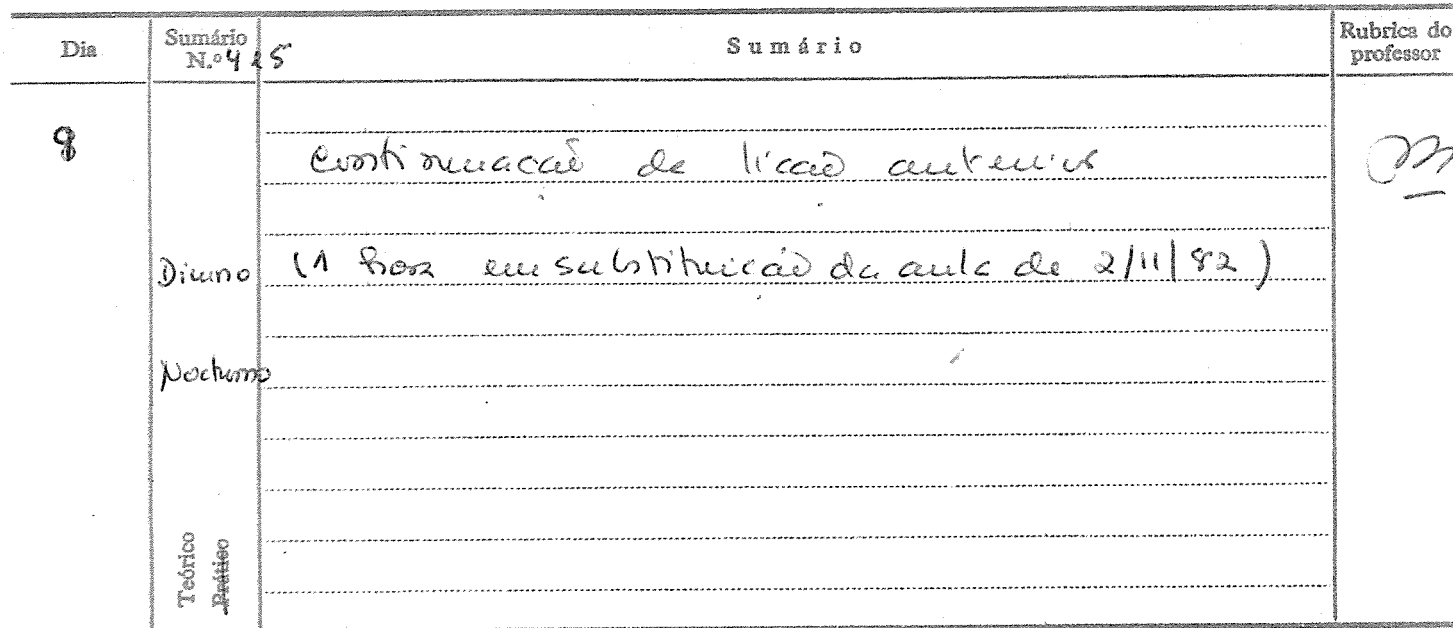 Dia Sumário Sumário Rubrica do
N.º 4 e 5 professor
8 continuação da lição anterior
Diurno (1 hora em substituição da aula de 2/11/82)
Nocturno
Teórico
Prático